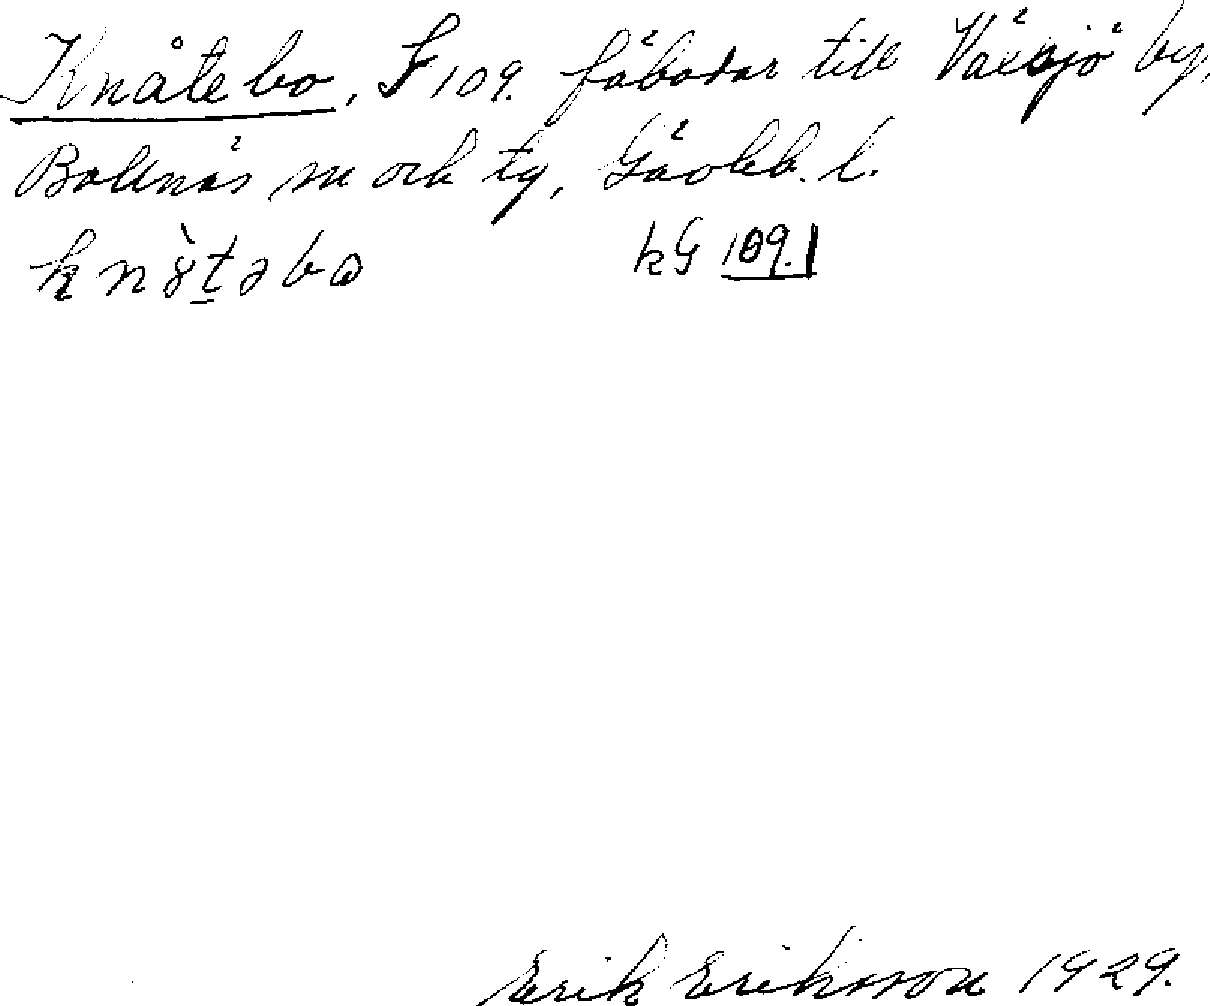 Knåtebo, F 109. fäbodar till Växsjö by,
Bollnäs sn och tg, Gävleb. l.
kG 109.1
Erik Eriksson 1929.